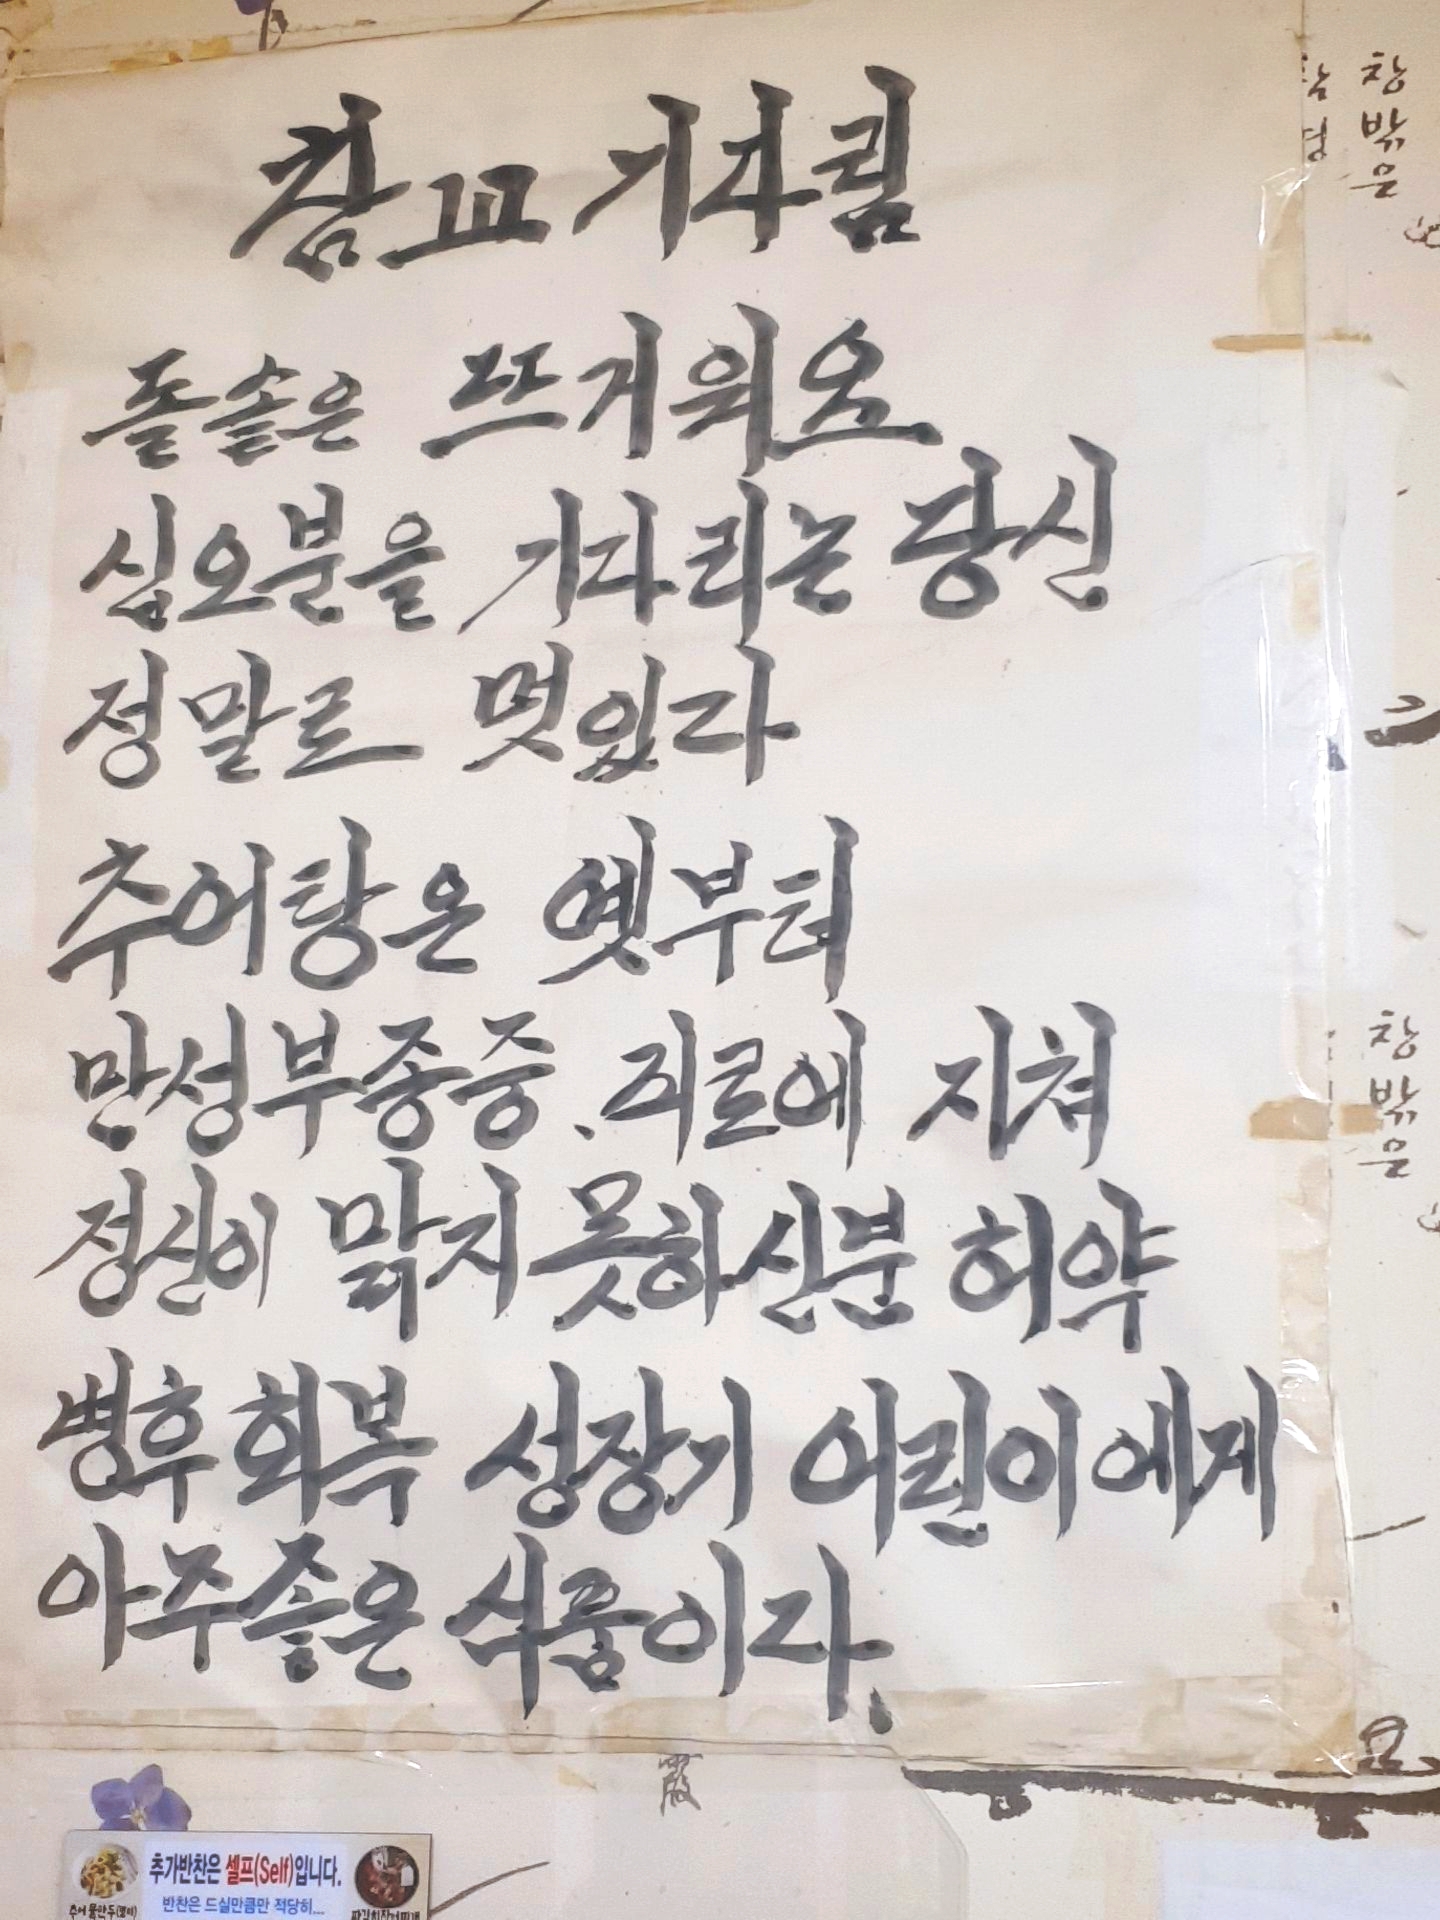 참고 기다림
돌솥은 뜨거워요
십오분을 기다리는 당신
정말로 멋있다
추어탕은 옛부터
만성부종중. 피로에 지쳐
정신이 맑지못하신분 허약
병후회복 성장기 어린이에게
아주좋은 식품이라.
창밖은
창밖은
霞
추가반찬은 셀프(Self)입니다.
반찬은 드실만큼만 적당히...